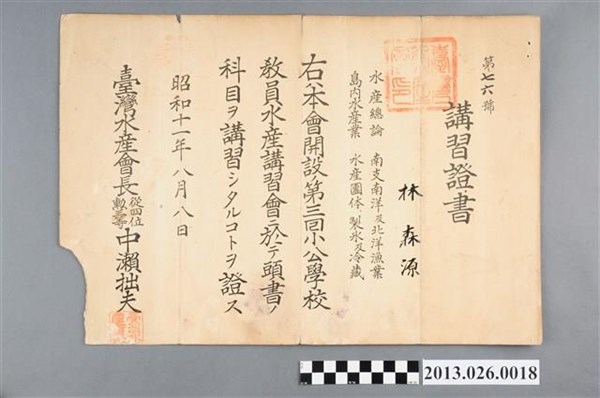 第七六號
講習證書
林森源
水産總論　南支南洋及北洋漁業
島内水産業　水産團体　製氷及冷藏
右ハ本會開設ノ第三回小公學校
教員水産講習會ニ於テ頭書ノ
科目ヲ講習シタルコトヲ證ス
昭和十一年八月八日
臺灣水産會長
從四位
勲三等
中瀬拙夫
2013.026.0018